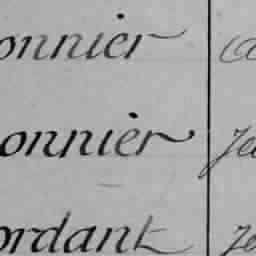 onnier
onnier Je
ordant Je